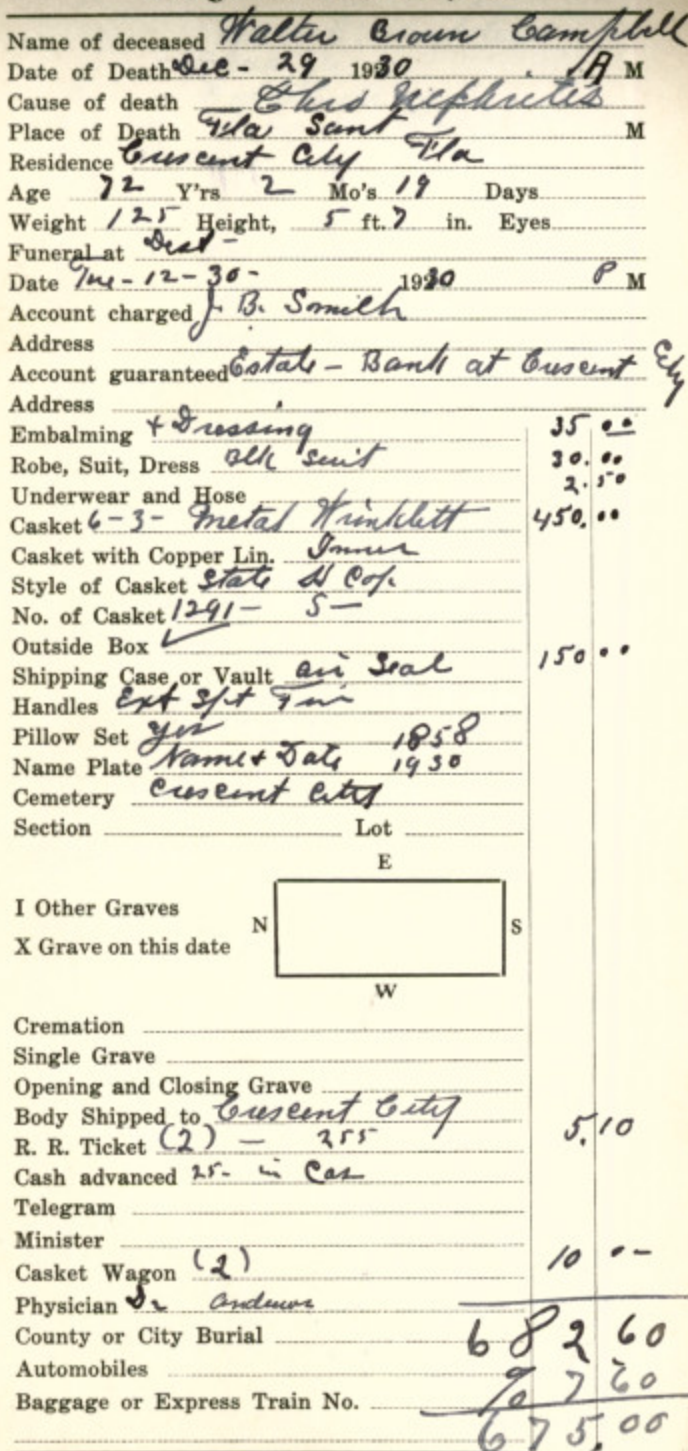 Name of deceased Walter Brown Campbell
Date of Death Dec - 29 1930 A M
Cause of death Chro Nephrites
Place of Death Fla Sant M
Residence Crescent City Fla
Age 72 Y'rs 2 Mo's 19 Days
Weight 125 Height, 5 ft. 7 in. Eyes
Funeral at
Date Tue - 12 - 30 - 1930 P M
Account charged J. B. Smith
Address
Account guaranteed Estate - Bank at Crescent City
Address
Embalming + Dressing 35 00
Robe, Suit, Dress Blk Suit 30. 00
Underwear and Hose 2. 50
Casket 6 - 3 - Metal 450. 00
Casket with Copper Lin. Inner
Style of Casket State
No. of Casket 1291 - S -
Outside Box ✓
Shipping Case or Vault air Seal 150 00
Handles Ext
Pillow Set yes 1858
Name Plate Name + Date 1930
Cemetery Crescent City
Section Lot
E
I Other Graves
N S
X Grave on this date
W
Cremation
Single Grave
Opening and Closing Grave
Body Shipped to Crescent City
R. R. Ticket (2) - 255 5.10
Cash advanced 25 - in
Telegram
Minister
Casket Wagon (2) 10 0-
Physician Dr Andrews
County or City Burial 682 60
Automobiles % 7 60
Baggage or Express Train No.
675.00